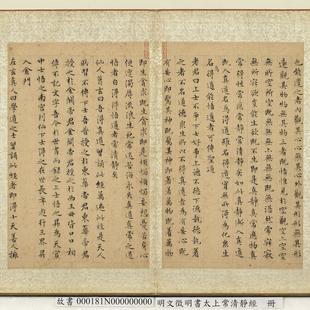 也能遣之者內觀其心心無其心外觀其形形無其形
遠觀其物物無其物三者既悟惟見於空觀空亦空
空無所空所空既無無無亦無無無既無湛然常寂
寂無所寂慾豈能生慾既不生即是真靜
常應常靜常清靜矣如此清靜漸入真道
既入真道名為得道雖名得道實無所得為化眾生
名得道能悟之者可傳聖道
老君曰上士不爭下士好爭上德不德下德執德
之者不名道德眾生所以不得真道者為有妄心
有妄心即驚其神既驚其神即著萬物既著萬物
即生貪求既生貪求即是煩惱煩惱妄想憂苦身心
便遭濁辱流浪生死常沉苦海永失真道真常之道
悟者自得得悟道者常清靜矣
仙人葛翁曰吾得真道曾誦此經萬遍此經是天人
所習不傳下士吾昔受之於東華帝君東華帝君
受之於金闕帝君金闕帝君受之於西王母皆口口相
傳不記文字吾今於世書而錄之上士悟之昇為天官
中士悟之南宮列仙下士得之在世長年遊行三界昇
入金門
左玄真人曰學道之士持誦此經者即得十天善神擁
故書 000181N000000000 明文徵明書太上常清靜經 冊